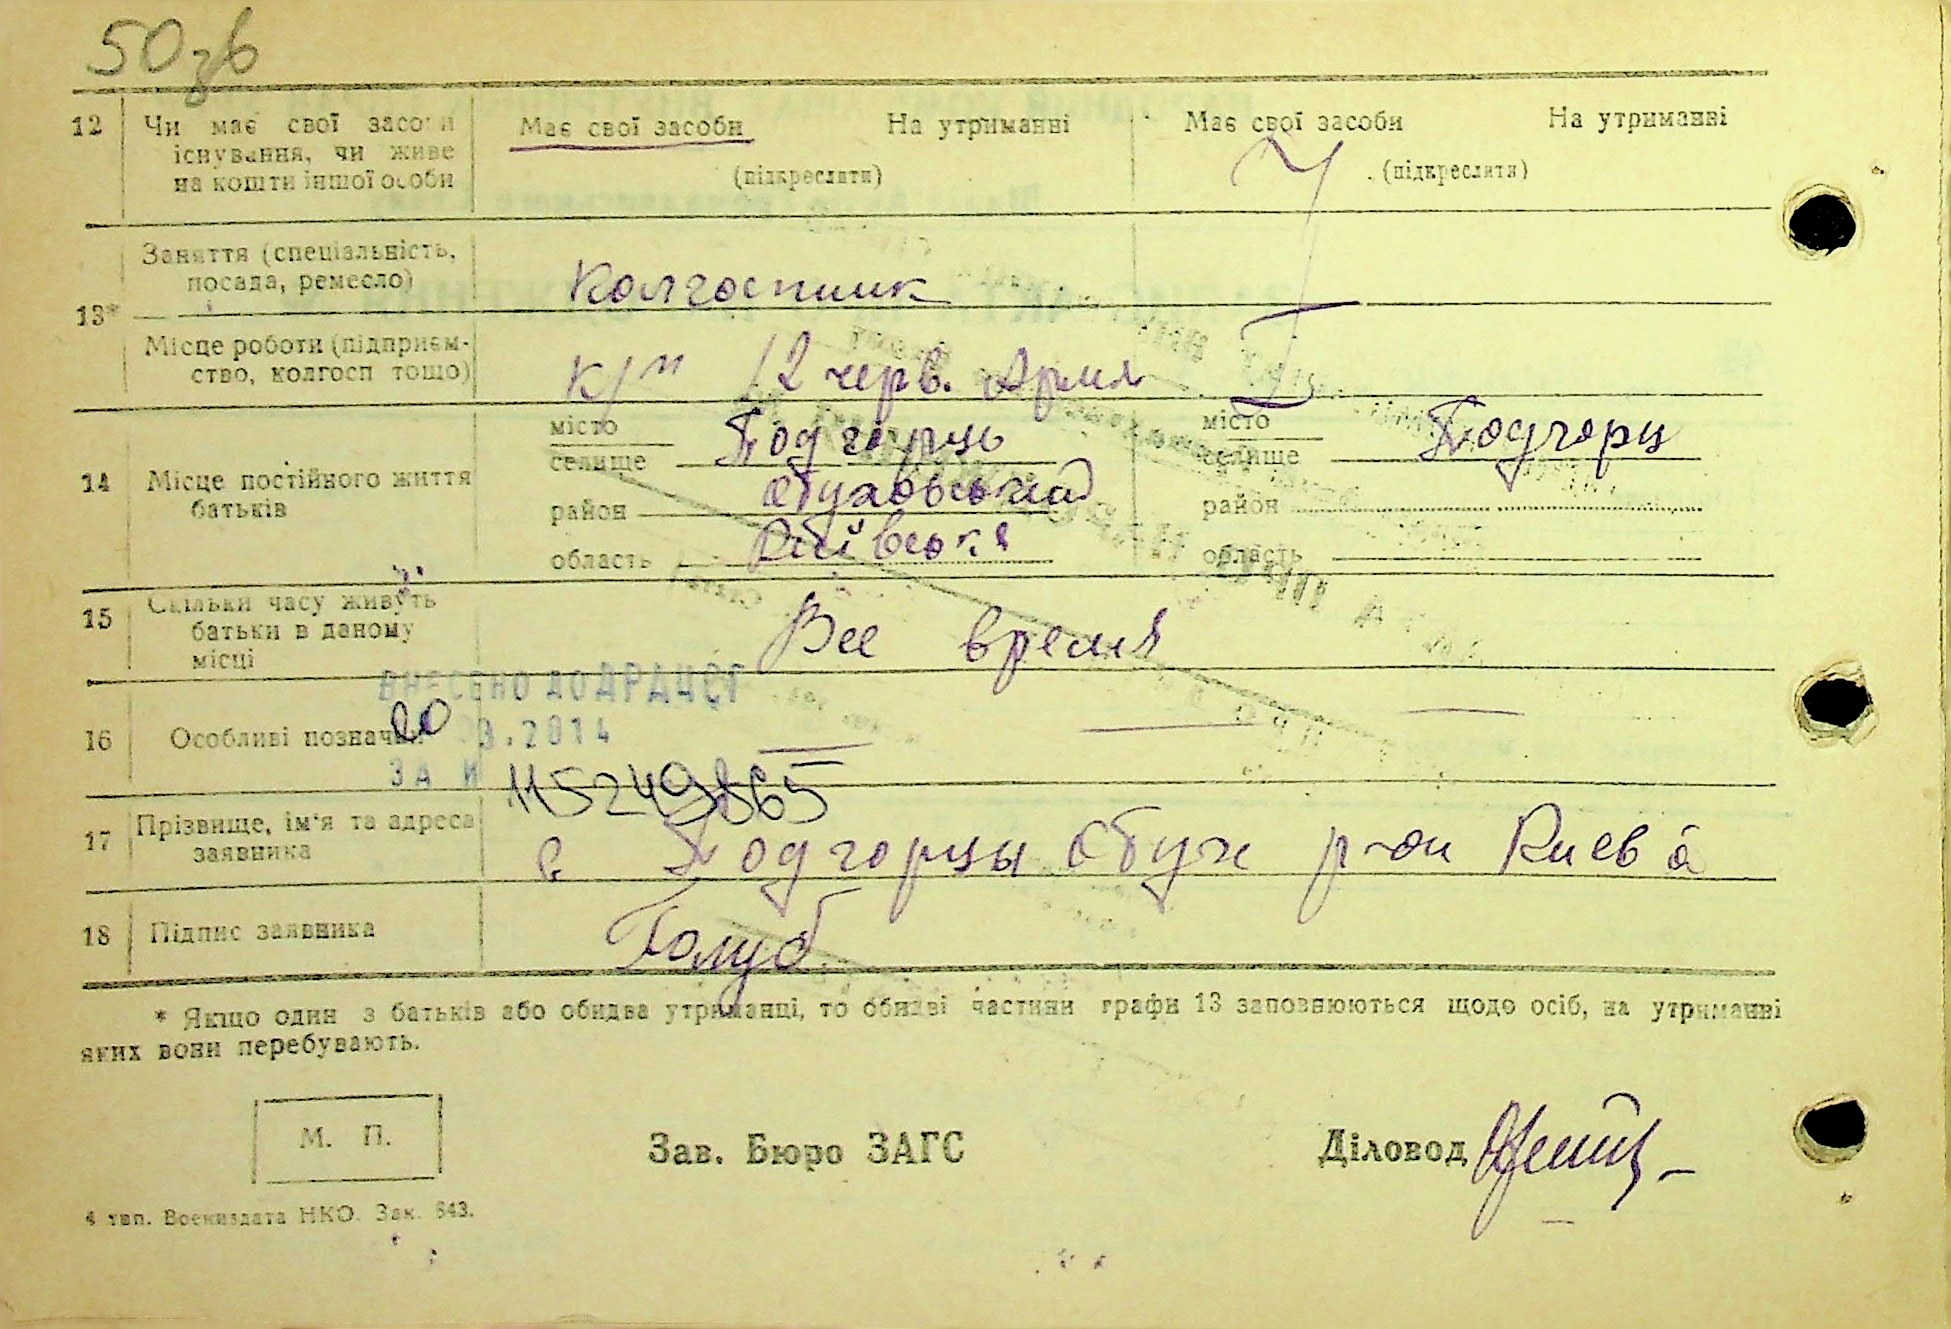 50зв
12 Чи має свої засоби Має свої засоби На утриманні Має свої засоби На утриманні
існування, чи живе
на кошти іншої особи (підкреслити) (підкреслити)
Заняття (спеціальність,
посада, ремесло) Колгоспник
13*
Місце роботи (підприєм-
ство, колгосп тощо) к/п 12 черв. Армия
місто місто
селище Подгорць селище Подгорц
14 Місце постійного життя
батьків
район Обуховський район
область Київська область
15 Скільки часу живуть
батьки в даному
місці
Все время
ВНЕСЕНО ДО ДРАЦСГ
16 Особливі позначки 20 3.2014
ЗА 115249865
17 Прізвище, ім'я та адреса
заявника
с. Подгорцы Обух р-он Киев
18 Підпис заявника Голуб
* Якщо один з батьків або обидва утриманці, то обидві частини графи 13 заповнюються щодо осіб, на утриманні
яких вони перебувають.
М. П.
Зав. Бюро ЗАГС Діловод
4 тип. Воениздата НКО. Зак. 843.